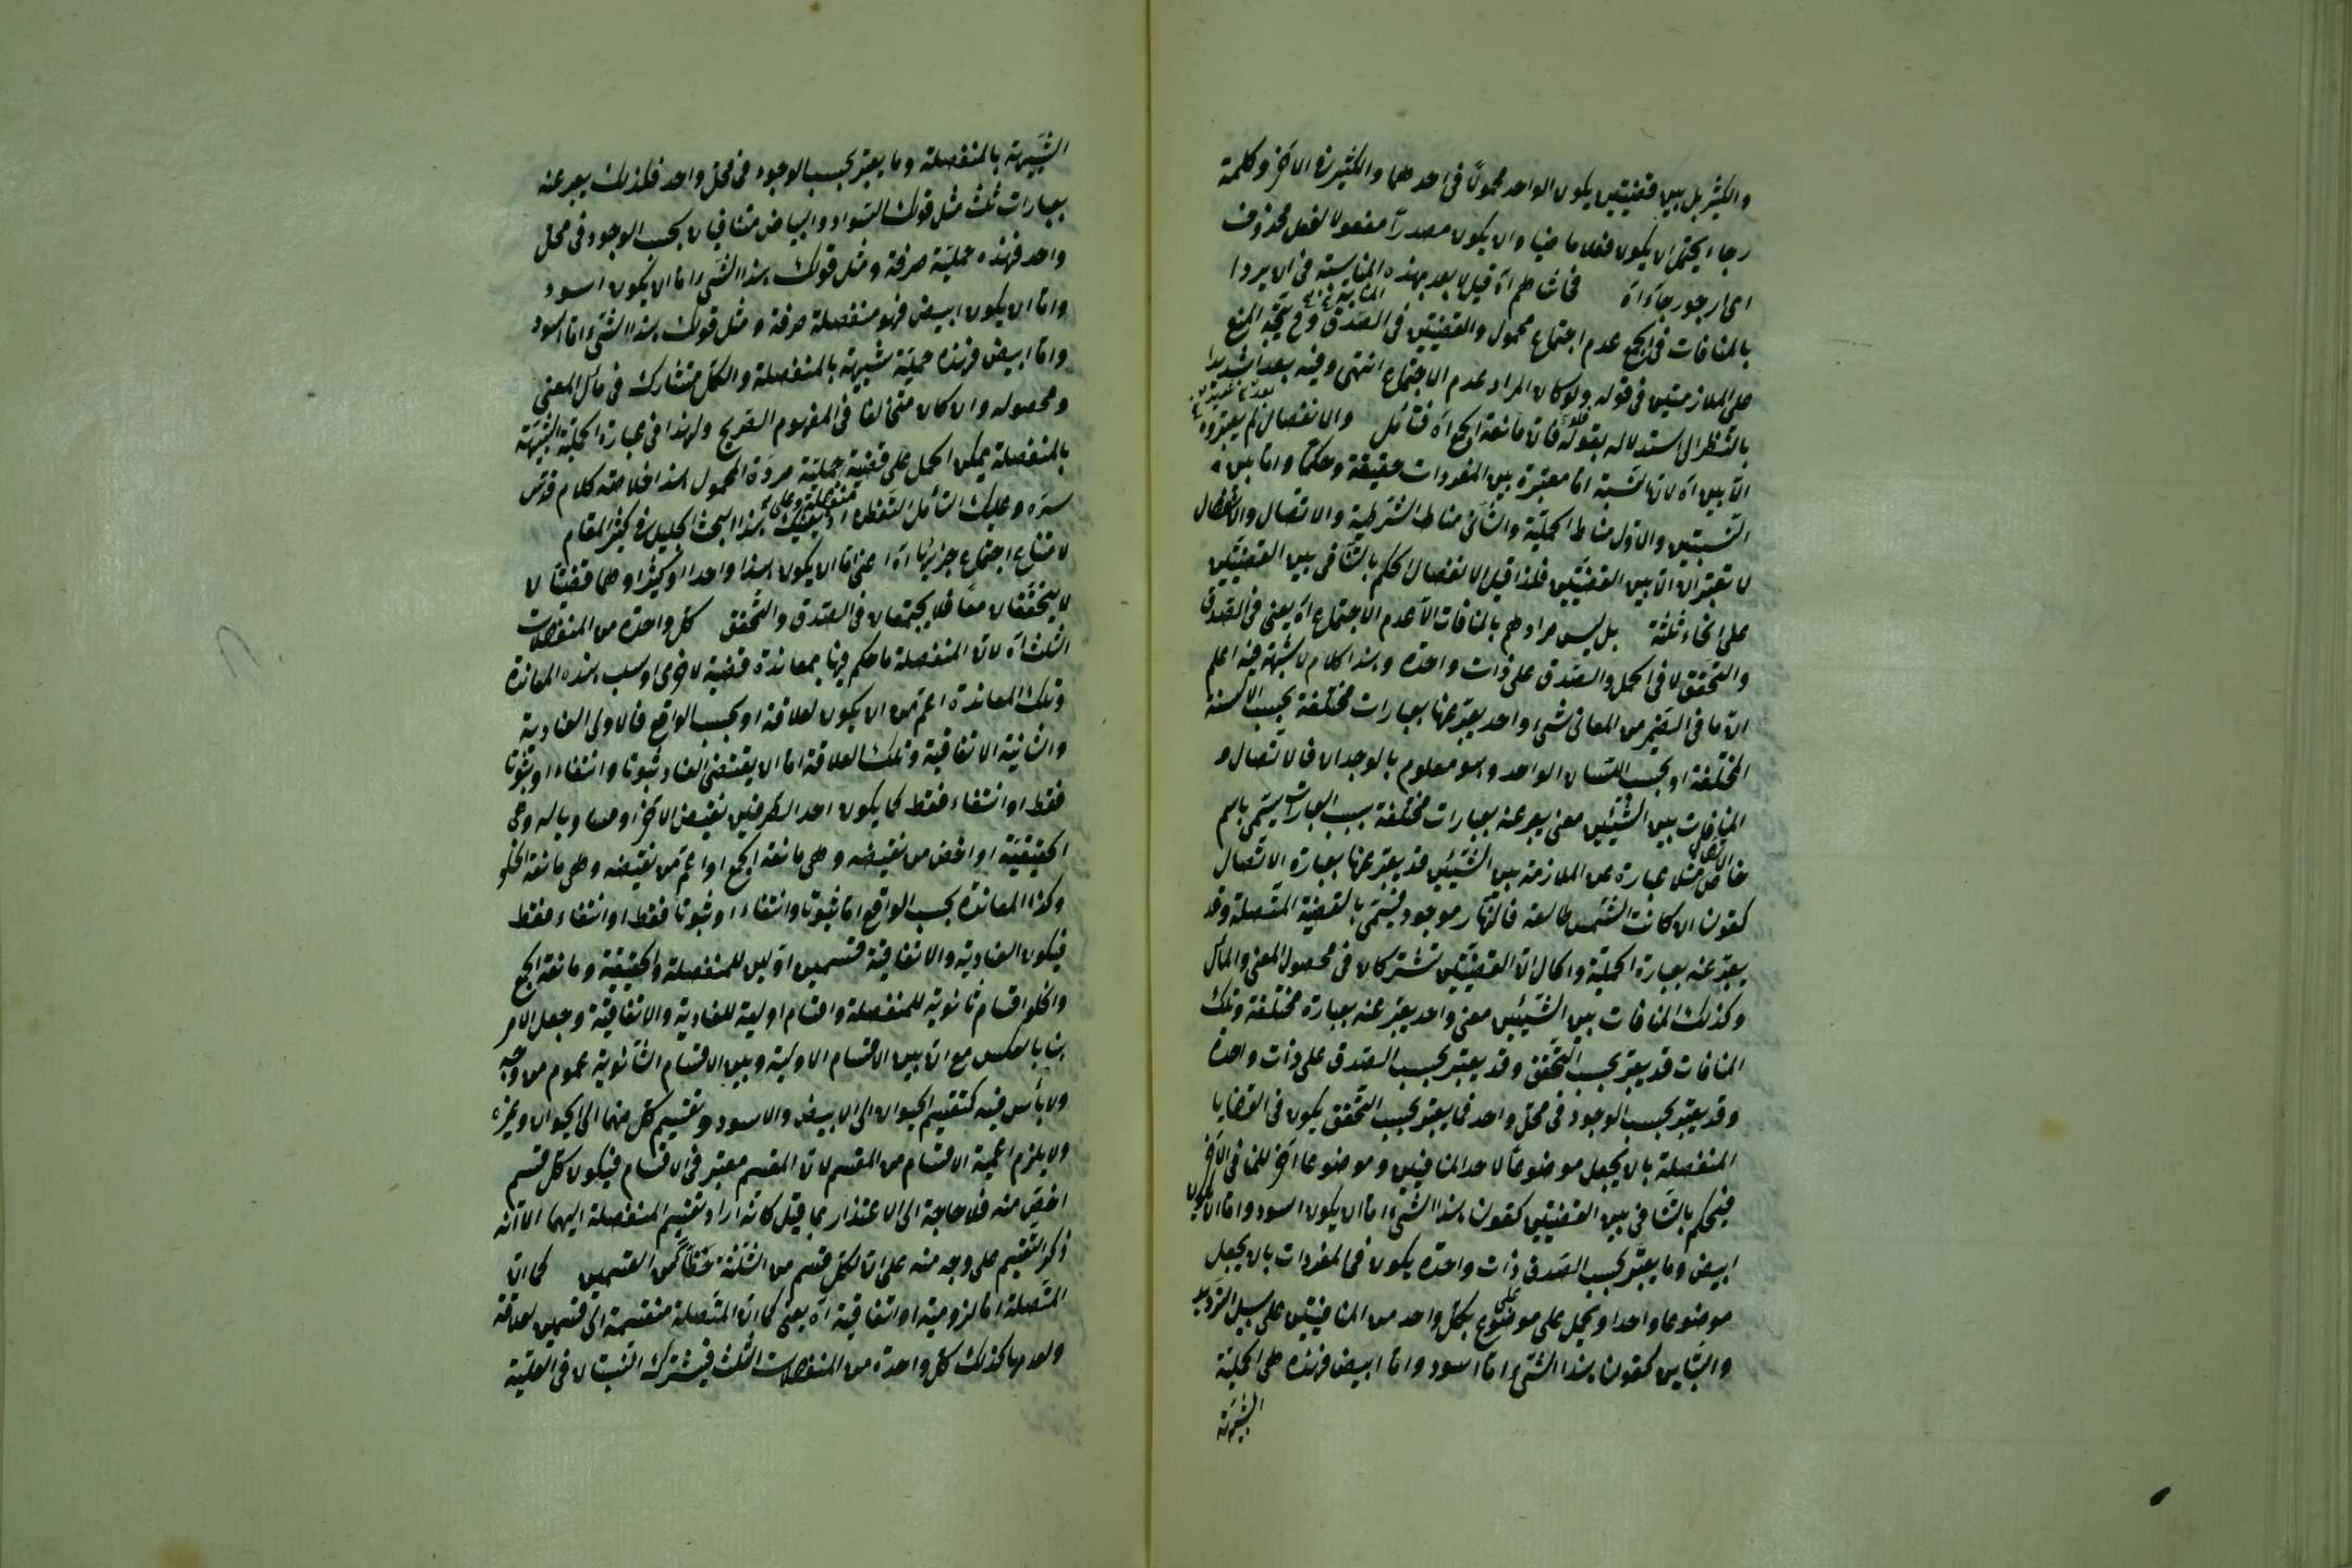 والكثير بل بين قضيتين يكون الواحد محمولا في احدهما والكثير في الاخر وكلمة
رجاء يحتمل ان يكون فعلا ماضيا وان يكون مصدرا مفعولا لفعل محذوف
اى ارجو رجاء اه فانه قيل لا بعد بهذه في ان يردا
بالمنافات في الجمع عدم اجتماع محمول والقضيتين في الصدق وح يتجه المنع
على الملازمتين في قوله ولو كان المراد عدم الاجتماع انتهى وفيه بعد
بالنظر الى استدلاله بقوله فان مانعة الجمع اه فتأمل والانفصال لم يعتبروه
الا بين اه لان النسبة اما معتبرة بين المفردات حقيقة وحكما واما بين
النسبتين والاول مناط الحملية والثاني مناط الشرطية والاتصال والانفصال
لا تعتبران الا بين القضيتين فلذا قيل الانفصال الحكم بالتنافي بين القضيتين
على انحاء ثلثة بل ليس مرادهم بالمنافات الا عدم الاجتماع اه يعنى في الصدق
والتحقق لا في الحمل والصدق على ذات واحدة وهذا كلام لا شبهة فيه اعلم
ان ما في الضمير من المعاني شيء واحد يعبر عنها بعبارات مختلفة بحسب الالسنة
المختلفة او بحسب اللسان الواحد وهو معلوم بالوجدان فالاتصال و
المنافات بين الشيئين معنى يعبر عنه بعبارات مختلفة بسبب العبارات يسمى باسم
خاص مثلا عبارة عن الملازمة بين الشيئين قد يعبر عنها بعبارة الاتصال
كقولنا ان كانت الشمس طالعة فالنهار موجود فيسمى بالقضية المتصلة وقد
يعبر عنه بعبارة الحملية والحال ان القضيتين تشتركان في محصول المعنى والمآل
وكذلك المنافات بين الشيئين معنى واحد يعبر عنه بعبارة مختلفة وتلك
المنافات قد يعتبر بحسب التحقق وقد يعتبر بحسب الصدق على ذات واحدة
وقد يعتبر بحسب الوجود في محل واحد فما يعتبر بحسب التحقق يكون في القضايا
المنفصلة بان يجعل موضوعا لاحد المنافيين وموضوعا اخر للمنافي الاخر
فيحكم بالتنافي بين القضيتين كقولنا هذا الشيء اما ان يكون اسود واما ان يكون
ابيض وما يعتبر بحسب الصدق ذات واحدة يكون في المفردات بان يجعل
موضوعا واحدا ويحمل على موضوع بكل واحد من المنافيين على سبيل الترديد
كقولنا هذا الشيء اما اسود واما ابيض فهذه هي الحملية
الشبيهة
الشبيهة بالمنفصلة وما يعتبر بحسب الوجود في محل واحد فلذلك يعبر عنه
بعبارات ثلث مثل قولك السواد والبياض متنافيان بحسب الوجود في محل
واحد فهذه حملية صرفة ومثل قولك هذا الشيء اما ان يكون اسود
واما ان يكون ابيض فهو منفصلة صرفة ومثل قولك هذا الشيء اما اسود
واما ابيض فهذه حملية شبيهة بالمنفصلة والكل متشارك في مآل المعنى
ومحصوله وان كان متخالفا في المفهوم الصريح ولهذا في عبارة الحملية الشبيهة
بالمنفصلة يمكن الحمل على قضية حملية مردة المحمول هذا خلاصة كلام قدس
سره وعليك التأمل هذا البحث الجليل في كثير المقام
لامتناع اجتماع جزئيها اه اعنى اما ان يكون هذا واحدا او كثيرا وهما قضيتان لا
لا يتحققان معا فلا يجتمعان في الصدق والتحقق كل واحدة من المنفصلات
الثلث اه لان المنفصلة ما حكم فيها بمعاندة قضية لاخرى او سلب هذه المعاندة
وتلك المعاندة اعم من ان يكون لعلاقة او بحسب الواقع فالاولى العنادية
والثانية الاتفاقية وتلك العلاقة اما ان يقتضى العناد ثبوتا وانتفاء او ثبوتا
فقط او انتفاء فقط كما يكون احد الطرفين نقيض الاخر او مساويا له وهى
الحقيقية او اخص من نقيضه وهى مانعة الجمع او اعم من نقيضه وهى مانعة الخلو
وكذا المعاندة بحسب الواقع اما ثبوتا وانتفاء او ثبوتا فقط او انتفاء فقط
فيكون العنادية والاتفاقية قسمين اولين للمنفصلة والحقيقية ومانعة الجمع
والخلو اقسام ثانوية للمنفصلة واقسام اولية للعنادية والاتفاقية وجعل الامر
هنا بالعكس مع ان بين الاقسام الاولية وبين الاقسام الثانوية عموم من وجه
ولا بأس فيه كتقسيم الحيوان الى الابيض والاسود وتقسيم كل منهما الى الحيوان وغيره
ولا يلزم اعمية الاقسام من المقسم لان المقسم معتبر في الاقسام فيكون كل قسم
اخص منه فلا حاجة الى الاعتذار بما قيل كانه اراد تقسيم المنفصلة اليهما الا انه
ذكر التقسيم على وجه منه على ان لكل قسم من الثلثة حظا من القسمين كما ان
المتصلة اما لزومية او اتفاقية اه يعنى كما ان المتصلة منقسمة الى قسمين لعلاقة
ولعدمها كذلك كل واحدة من المنفصلات الثلث فيشترك النسبتان في العلية